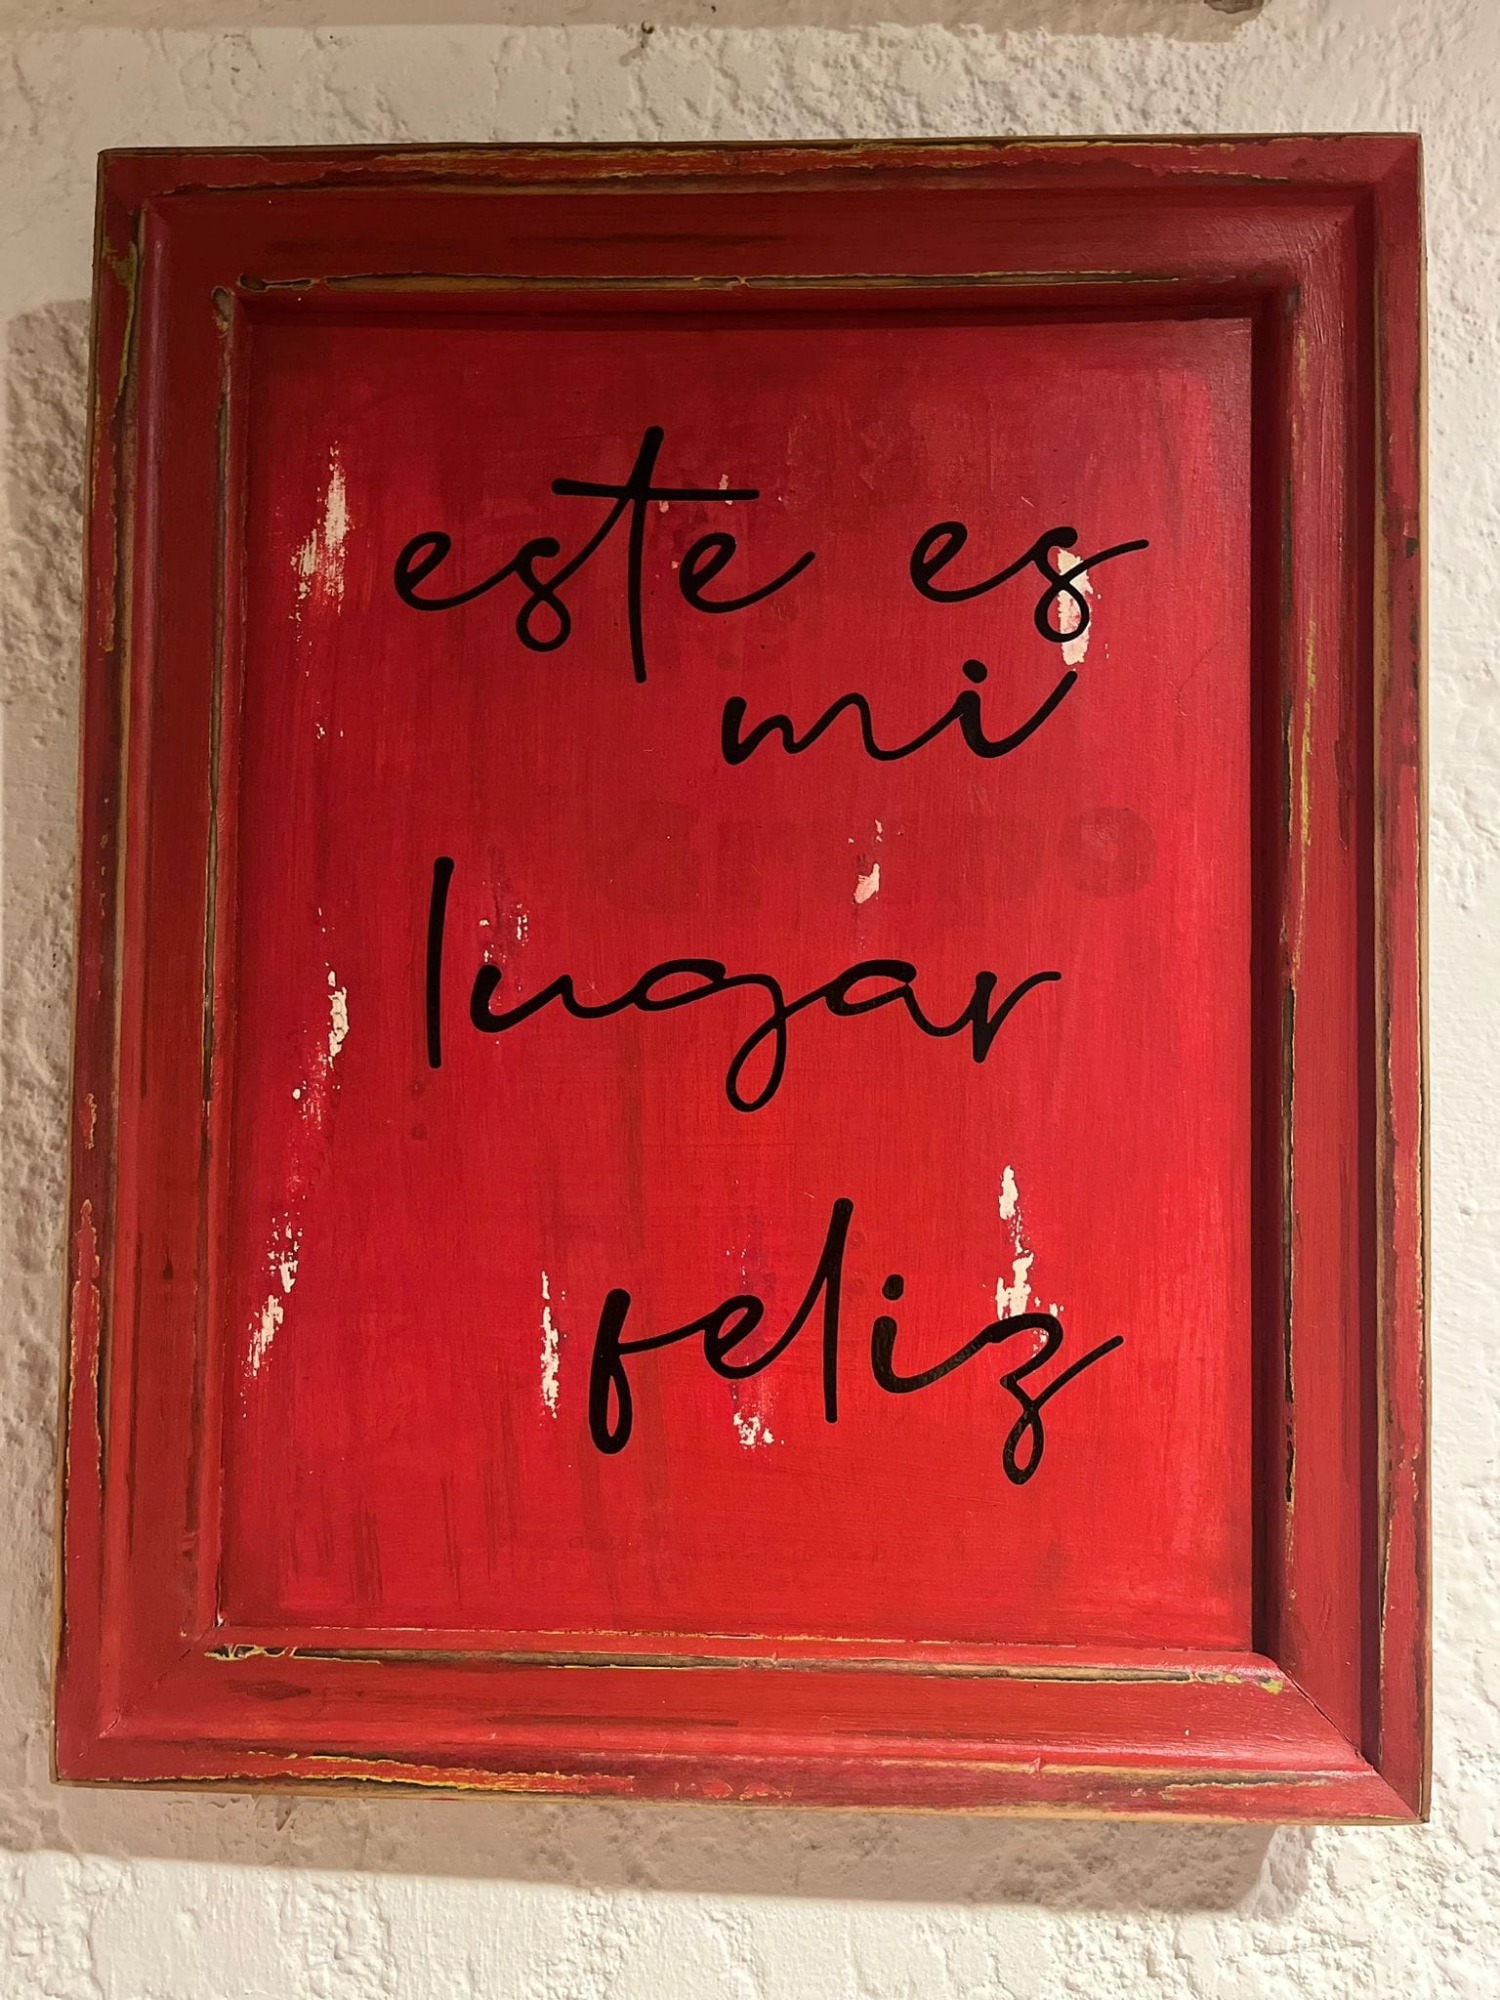 este es
mi
lugar
feliz